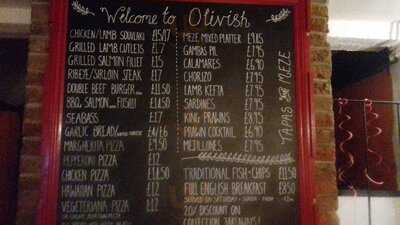 Welcome to Olivish
CHICKEN/LAMB SOUVLAKI £15/17
GRILLED LAMB CUTLETS £17
GRILLED SALMON FILLET £15
RIBEYE/SIRLOIN STEAK £17
DOUBLE BEEF BURGER £11.50
BBQ SALMON FUSILLI £14.50
SEABASS £17
GARLIC BREAD £4/£6
MARGHERITA PIZZA £9.50
PEPPERONI PIZZA £12
CHICKEN PIZZA
HAWAIIAN PIZZA £12
VEGETERIANA PIZZA £12
MEZE MIXED PLATTER
GAMBAS PIL £7.95
CALAMARES £6.90
CHORIZO £7.95
LAMB KEFTA £7.95
SARDINES £7.95
KING PRAWNS £8.95
PRAWN COCKTAIL £6.90
MEJILLONES £7.95
TAPAS MEZE
TRADITIONAL FISH-CHIPS £11.50
FULL ENGLISH BREAKFAST £8.50
SERVED ON SATURDAY - SUNDAY FROM
20% DISCOUNT ON
COLLECTION